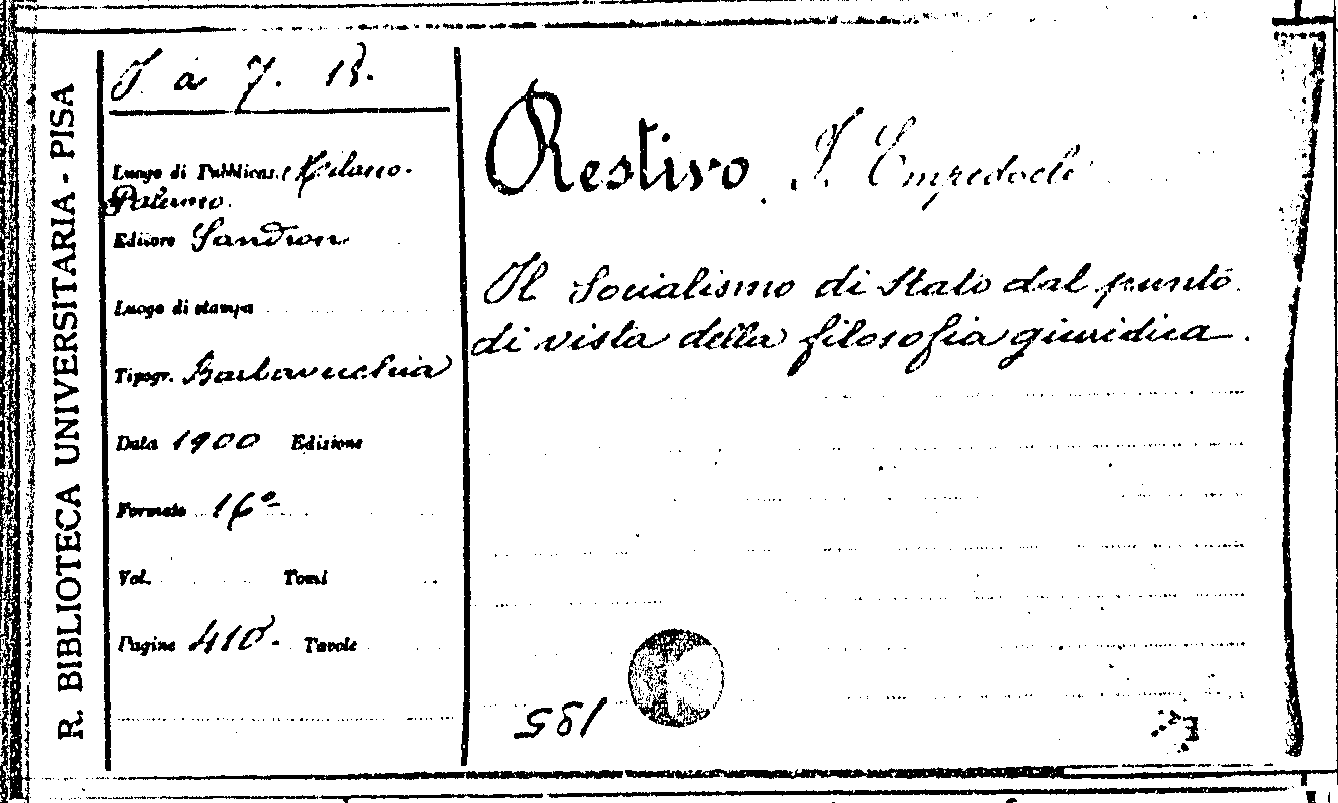 R. BIBLIOTECA UNIVERSITARIA - PISA
I a 7. 18.
Luogo di Pubblicaz. Milano.
Palermo.
Editore Sandron
Luogo di stampa
Tipogr. Barbavecchia
Data 1900 Edizione
Formato 16º
Vol. Tomi
Pagine 410 - Tavole
Restivo. F. Empedocle
Il Socialismo di Stato dal punto
di vista della filosofia giuridica.